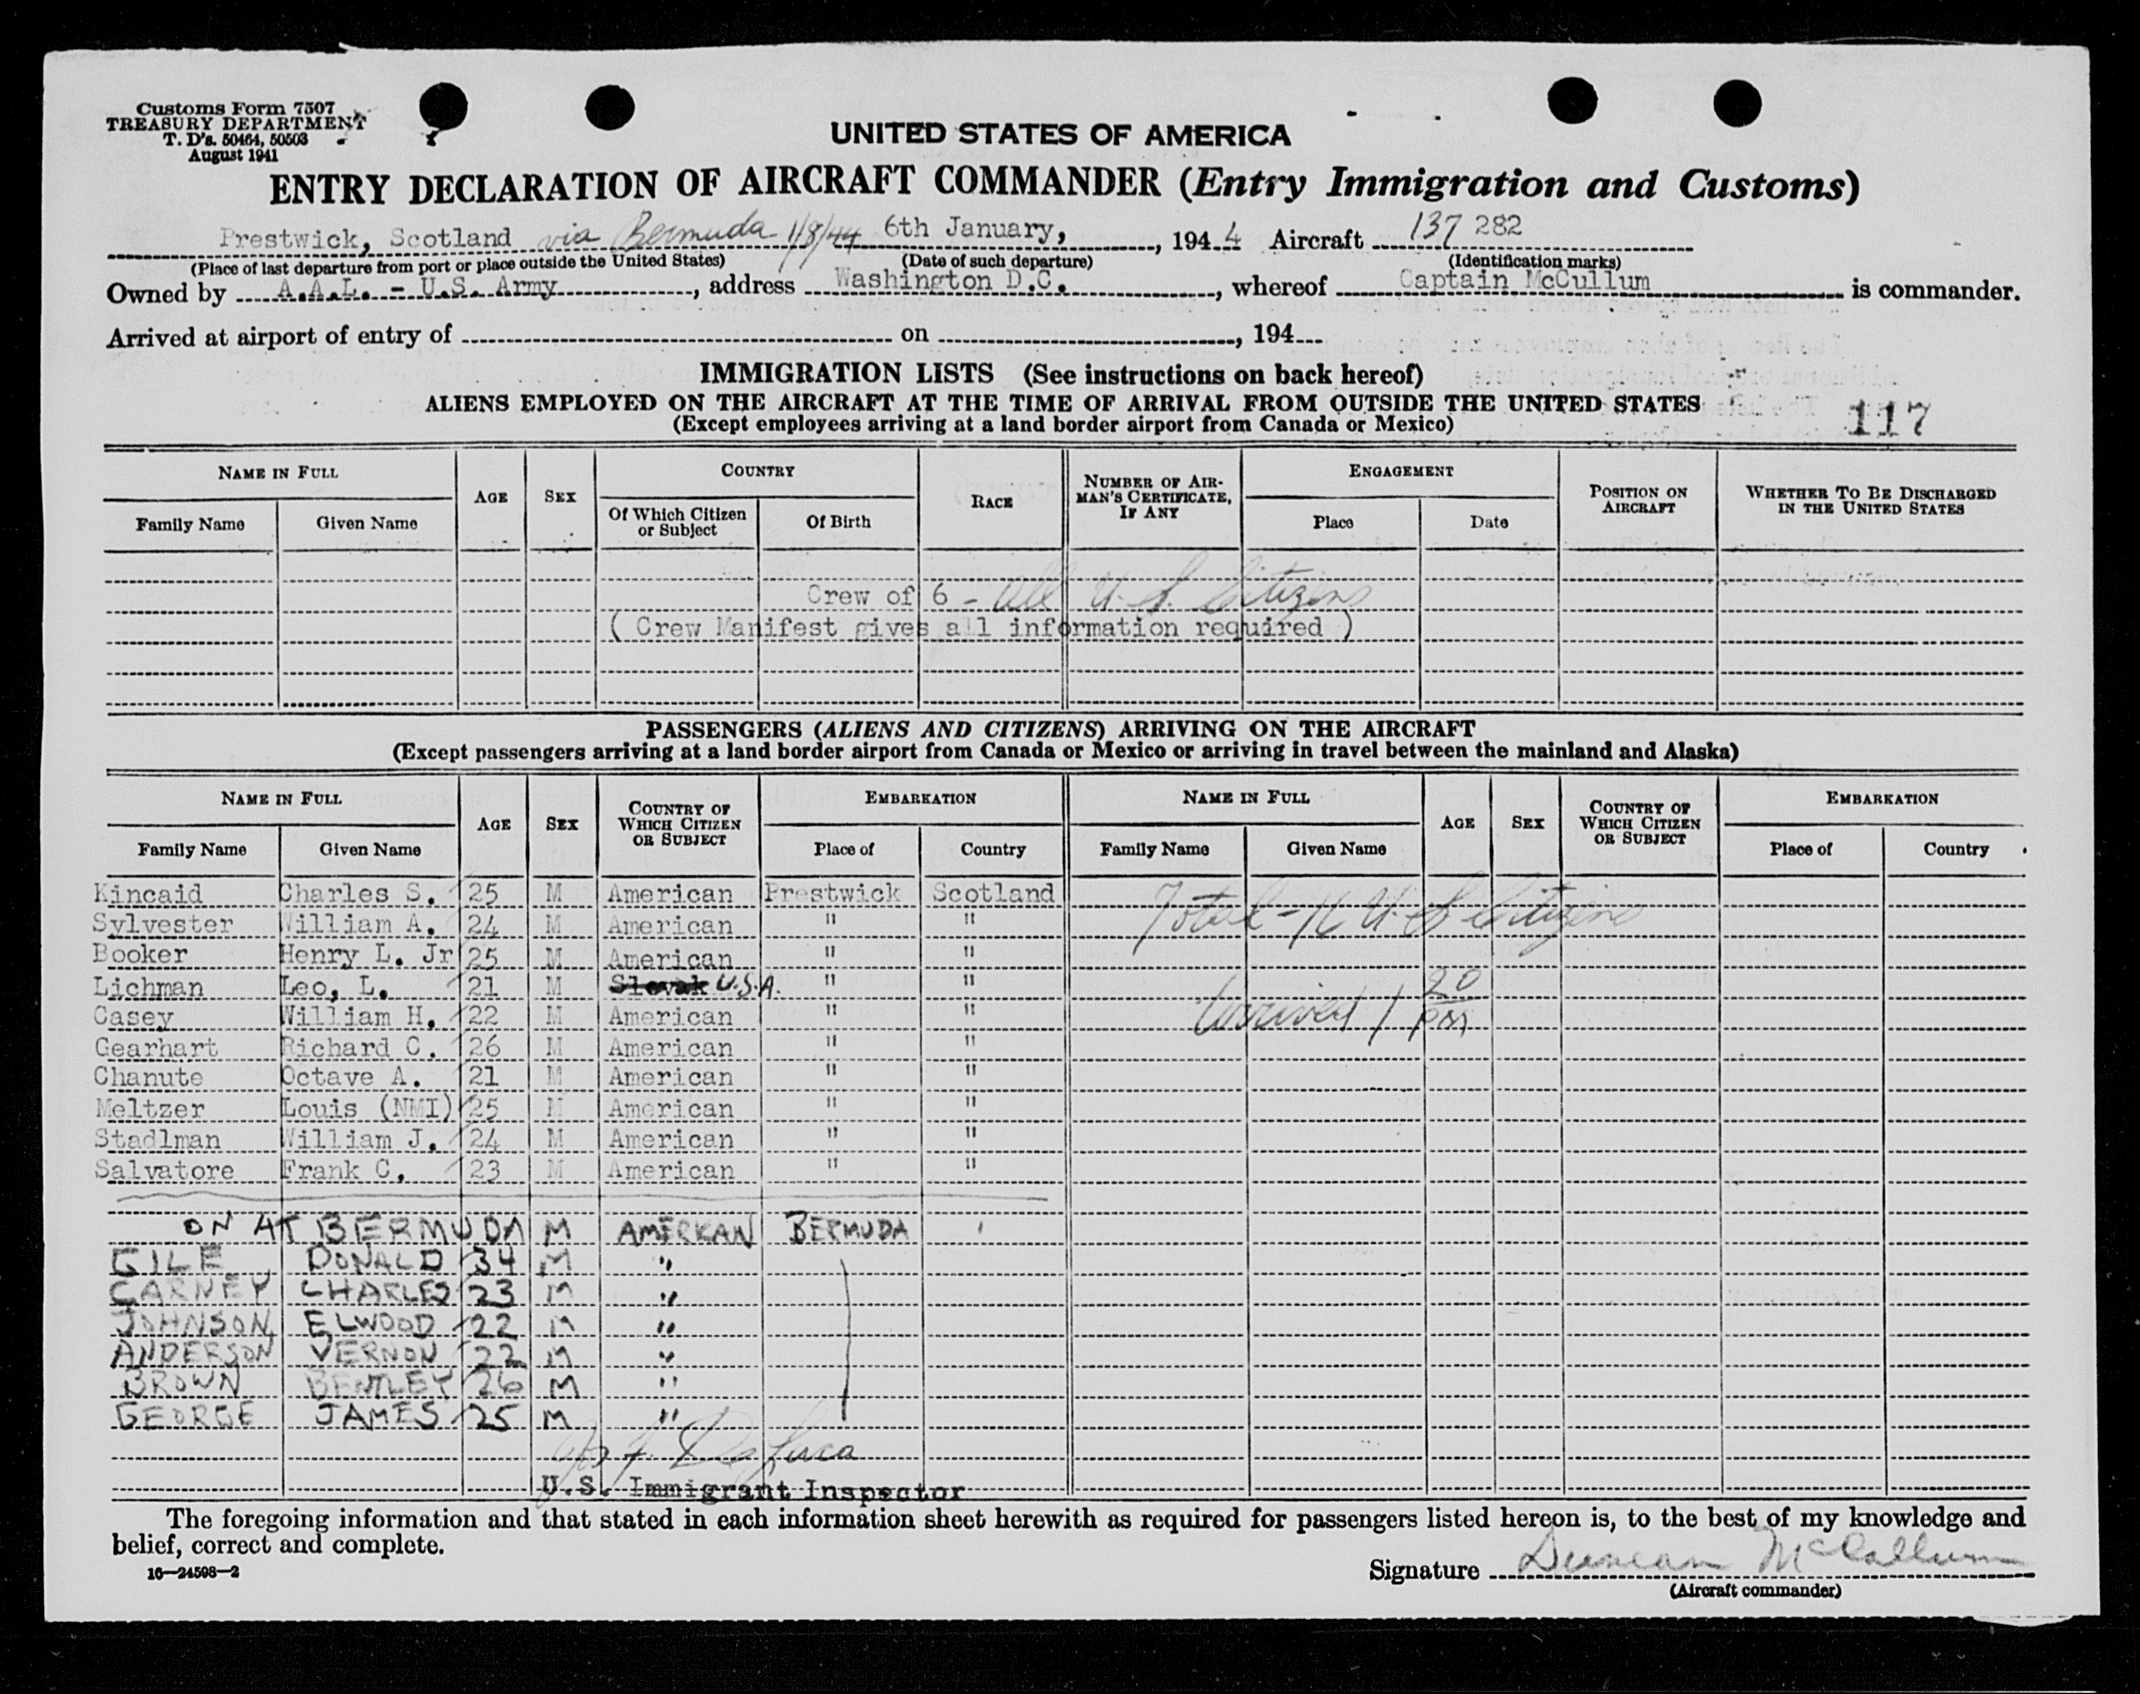 Customs Form 7507
TREASURY DEPARTMENT
T. D's. 50464, 50503
August 1941
UNITED STATES OF AMERICA
ENTRY DECLARATION OF AIRCRAFT COMMANDER (Entry Immigration and Customs)
Prestwick, Scotland via Bermuda 1/8/44 6th January, , 194 4 Aircraft 137 282
(Place of last departure from port or place outside the United States) (Date of such departure) (Identification marks)
Owned by A.A.L. - U.S. Army , address Washington D.C. , whereof Captain McCullum is commander.
Arrived at airport of entry of on , 194
IMMIGRATION LISTS (See instructions on back hereof)
ALIENS EMPLOYED ON THE AIRCRAFT AT THE TIME OF ARRIVAL FROM OUTSIDE THE UNITED STATES
(Except employees arriving at a land border airport from Canada or Mexico)
117
NAME IN FULL AGE SEX COUNTRY RACE NUMBER OF AIRMAN'S CERTIFICATE, IF ANY ENGAGEMENT POSITION ON AIRCRAFT WHETHER TO BE DISCHARGED IN THE UNITED STATES
Family Name Given Name Of Which Citizen or Subject Of Birth Place Date
Crew of 6 - all U.S. Citizens
( Crew Manifest gives all information required )
PASSENGERS (ALIENS AND CITIZENS) ARRIVING ON THE AIRCRAFT
(Except passengers arriving at a land border airport from Canada or Mexico or arriving in travel between the mainland and Alaska)
NAME IN FULL AGE SEX COUNTRY OF WHICH CITIZEN OR SUBJECT EMBARKATION NAME IN FULL AGE SEX COUNTRY OF WHICH CITIZEN OR SUBJECT EMBARKATION
Family Name Given Name Place of Country Family Name Given Name Place of Country
Kincaid Charles S. 25 M American Prestwick Scotland
Sylvester William A. 24 M American " " Total - 16 U S Citizens
Booker Henry L. Jr 25 M American " "
Lichman Leo, L. 21 M Slovak U.S.A. " "
Casey William H. 22 M American " " Arrived 1 20 PM
Gearhart Richard C. 26 M American " "
Chanute Octave A. 21 M American " "
Meltzer Louis (NMI) 25 M American " "
Stadlman William J. 24 M American " "
Salvatore Frank C. 23 M American " "
ON AT BERMUDA M AMERICAN BERMUDA '
GILE DONALD 34 M "
CARNEY CHARLES 23 M "
JOHNSON ELWOOD 22 M "
ANDERSON VERNON 22 M "
BROWN BENTLEY 26 M "
GEORGE JAMES 25 M "
DeLuca
U.S. Immigrant Inspector
The foregoing information and that stated in each information sheet herewith as required for passengers listed hereon is, to the best of my knowledge and
belief, correct and complete.
16—24598—2
Signature Duncan McCallum
(Aircraft commander)